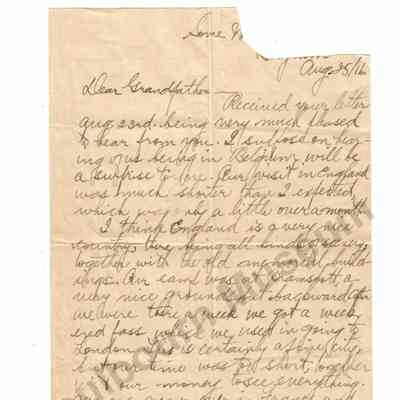 Some W
Belgium
Aug 25/16
Dear Grandfather
Received your letter
Aug 23rd. being very much pleased
to hear from you. I suppose on hear-
ing of us being in Belgium will be
a surprise to one. Our visit in England
was much shorter than I expected
which was only a little over a month.
I think England is a very nice
country, there being all kinds of scenery
together with the old memorial build-
ings. Our camp was at Ramsgate, a
very nice ground but backward after
we were there a week we got a week
end pass which we used in going to
London which is certainly a fine city,
but our time was too short, together
with our money to see everything.